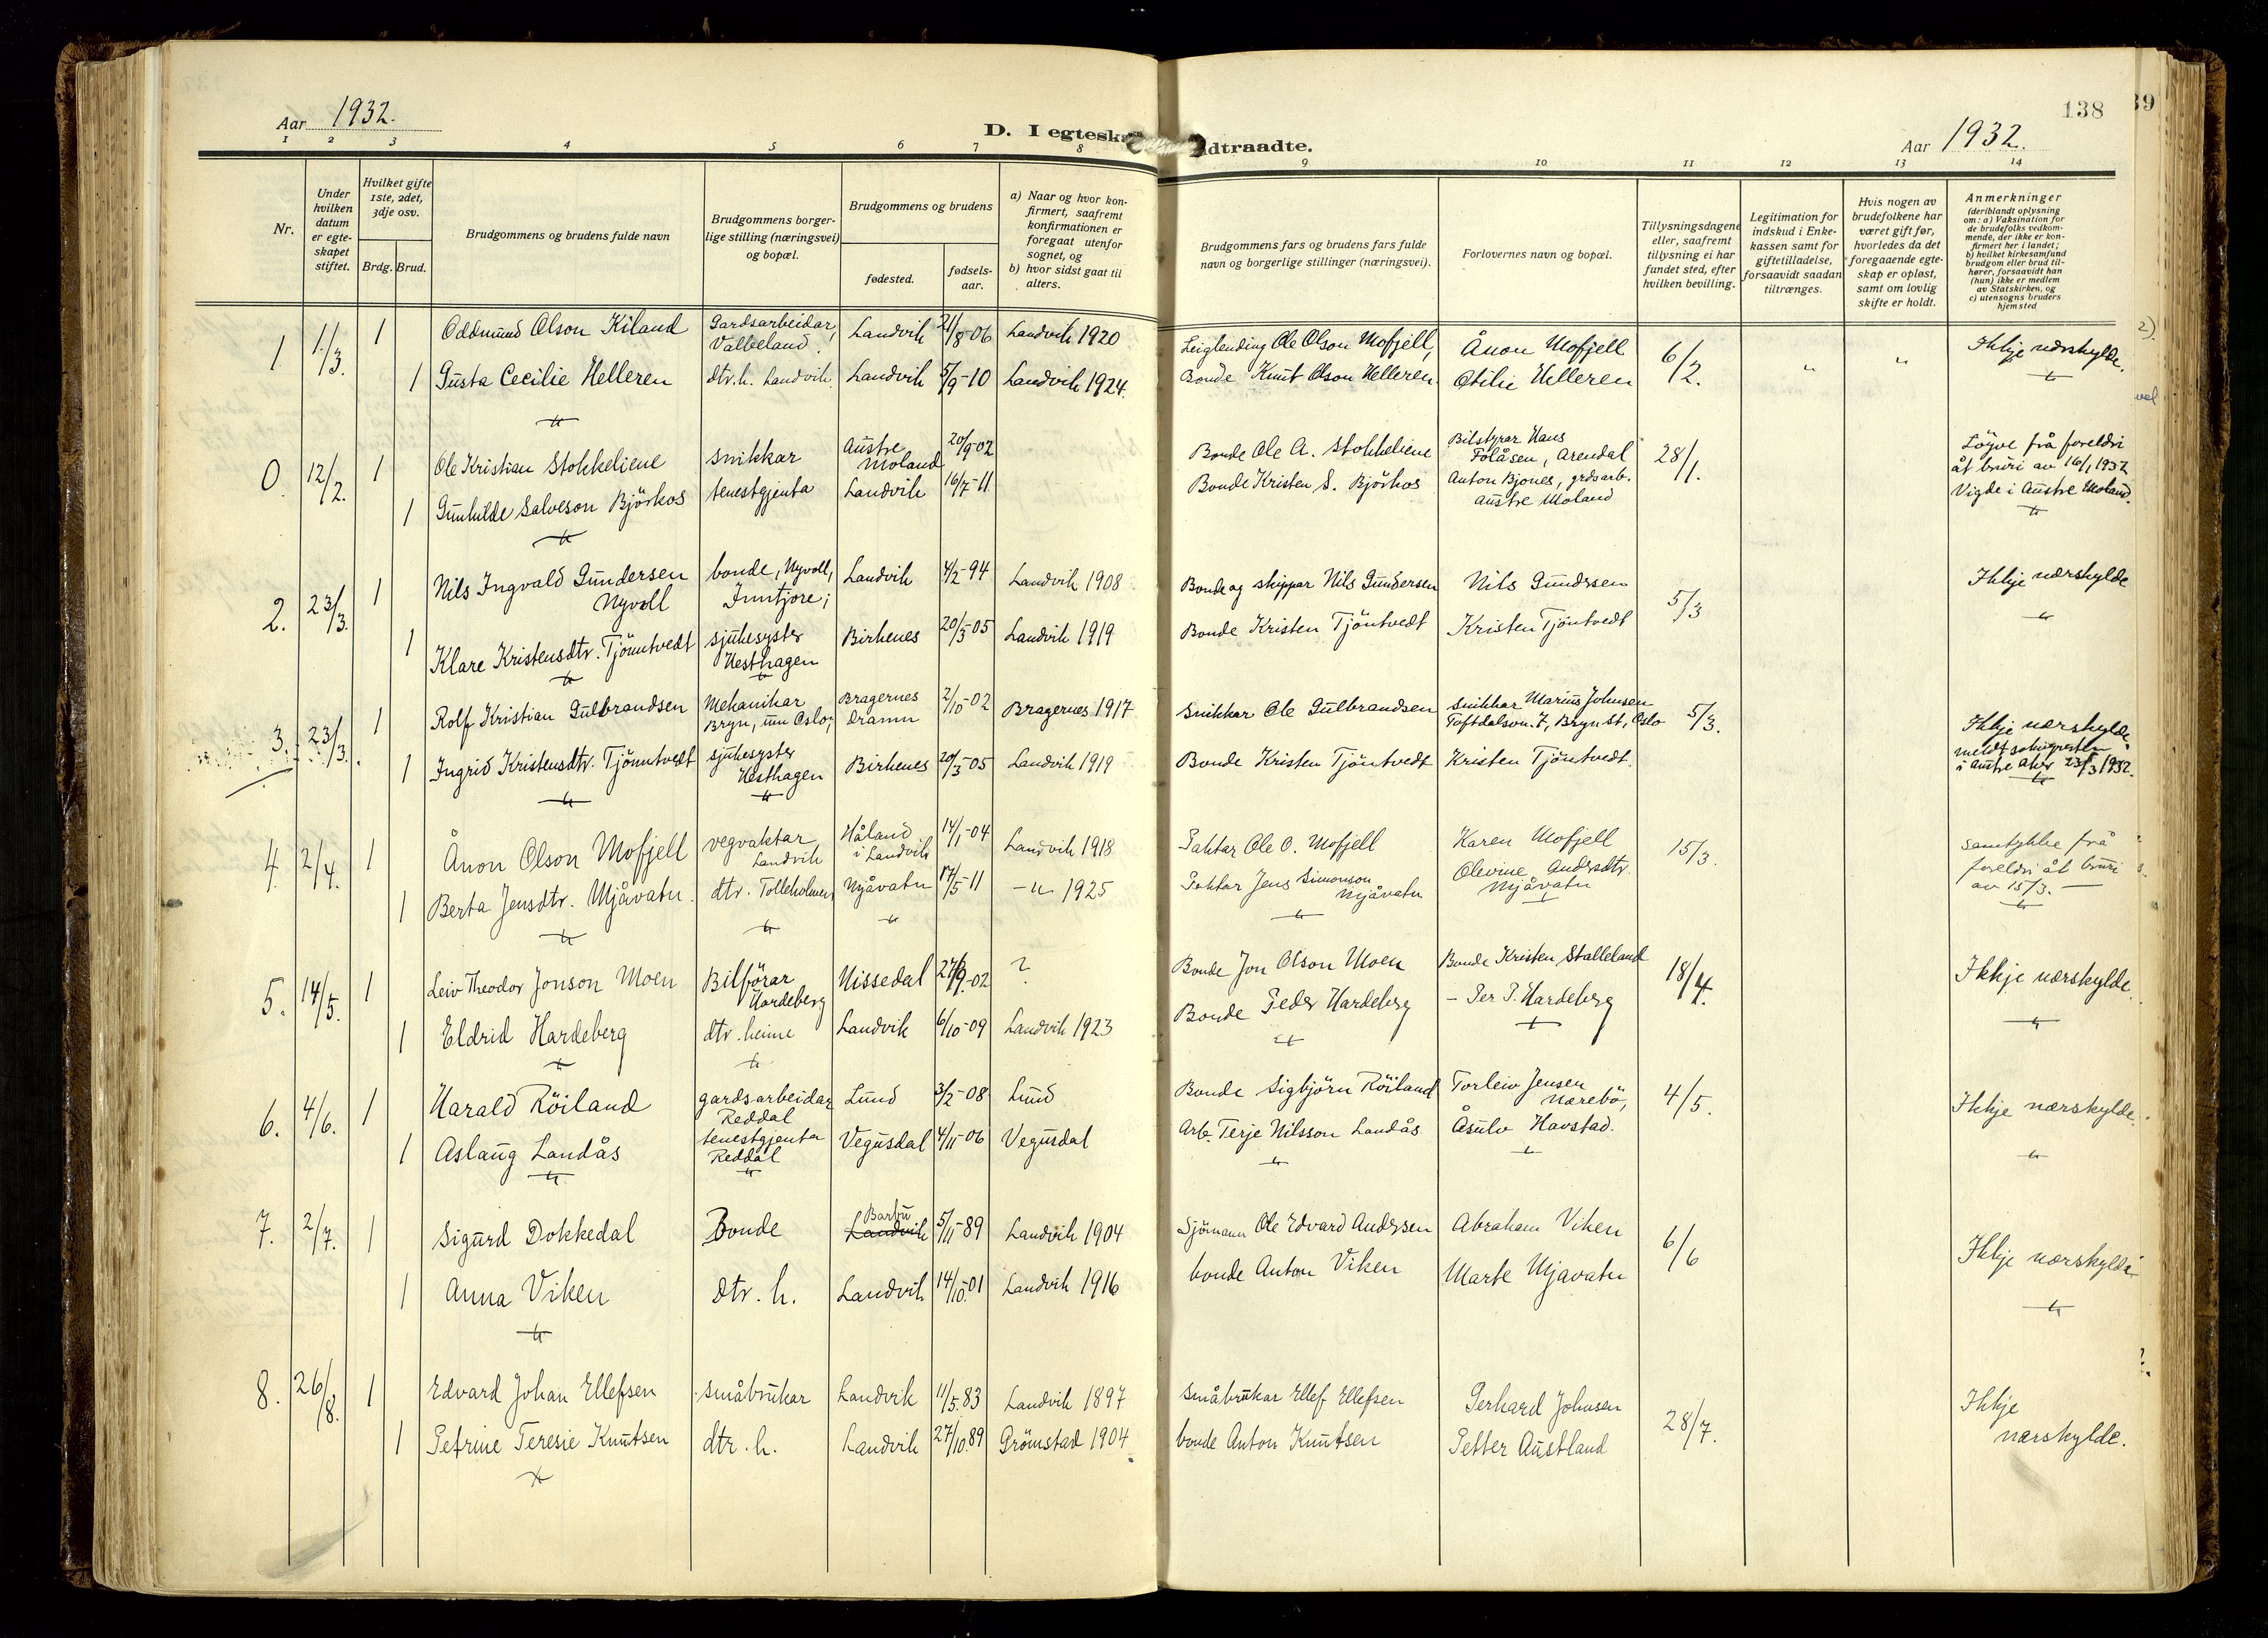 138
39
Aar 1932.
D. I egteska
dtraadte.
Aar 1932.
1 2 3 4 5 6 7 8 9 10 11 12 13 14
Nr.
Under hvilken datum er egteskapet stiftet.
Hvilket gifte 1ste, 2det, 3dje osv.
Brdg. Brud.
Brudgommens og brudens fulde navn
Brudgommens borgerlige stilling (næringsvei) og bopæl.
Brudgommens og brudens
fødested.
fødselsaar.
a) Naar og hvor konfirmert, saafremt konfirmationen er foregaat utenfor sognet, og
b) hvor sidst gaat til alters.
Brudgommens fars og brudens fars fulde navn og borgerlige stillinger (næringsvei).
Forlovernes navn og bopæl.
Tillysningsdagene eller, saafremt tillysning ei har fundet sted, efter hvilken bevilling.
Legitimation for indskud i Enkekassen samt for giftetilladelse, forsaavidt saadan tiltrænges.
Hvis nogen av brudefolkene har været gift før, hvorledes da det foregaaende egteskap er opløst, samt om lovlig skifte er holdt.
Anmerkninger
(deriblandt oplysning om: a) Vaksination for de brudefolks vedkommende, der ikke er konfirmert her i landet; b) hvilket kirkesamfund brudgom eller brud tilhører, forsaavidt han (hun) ikke er medlem av Statskirken, og c) utensogns bruders hjemsted
1 1/3. 1 Oddmund Olson Kiland Gardsarbeidar, Valleland. Landvik 21/8-06 Landvik 1920 Leiglending Ole Olson Mofjell, Ånon Mofjell 6/2. " " Ikkje nærskylde.
1 Gusta Cecilie Helleren dtr. h. Landvik. Landvik 5/9-10 Landvik 1924. Bonde Knut Olson Helleren. Otilie Helleren
0. 12/2. 1 Ole Kristian Stokkeliene snikkar Austre Moland 20/9-02 Bonde Ole A. Stokkeliene Bilstyrar Hans Folåsen, Arendal 28/1. Løyve frå foreldri åt bruri av 16/1 1932
1 Gunhilde Salveson Björkos tenestgjenta Landvik 16/7-11 Bonde Kristen S. Björkos Anton Bjones, grdsarb. Austre Moland Vigde i Austre Moland.
2. 23/3. 1 Nils Ingvald Gundersen Nyvoll bonde, Nyvoll, Inntjore; Landvik 4/2-94 Landvik 1908 Bonde og skippar Nils Gundersen Nils Gundrsen 5/3 Ikkje nærskylde
1 Klare Kristensdtr. Tjönntvedt sjukesyster Hesthagen Birkenes 20/3-05 Landvik 1919 Bonde Kristen Tjöntvedt Kristen Tjöntvedt
3. 23/3. 1 Rolf Kristian Gulbrandsen Mehanikar Bryn, um Oslo; Bragernes Dramn 2/10-02 Bragernes 1917 Snikkar Ole Gulbrandsen snikkar Marius Johnsen Toftdalsvn. 7, Bryn st, Oslo 5/3. Ikkje nærskylde
1 Ingrid Kristensdtr. Tjönntvedt sjukesyster Hesthagen Birkenes 20/3-05 Landvik 1919 Bonde Kristen Tjöntvedt Kristen Tjöntvedt. meldt soknepresten i Austre Aker 23/3 1932.
4. 2/4. 1 Ånon Olson Mofjell vegvaktar Landvik Håland i Landvik 14/1-04 Landvik 1918 Paktar Ole O. Mofjell Karen Mofjell 15/3. samtykke frå foreldri åt bruri av 15/3. —
1 Berta Jensdtr. Mjåvatn. dtr. Tolleholmen Mjåvatn 17/5-11 — " 1925 Paktar Jens Simonson Mjåvatn Olevine Andrsdtr. Mjåvatn
5. 14/5. 1 Leiv Theodor Jonson Moen Bilförar Hardeberg Nissedal 27/9.-02 ? Bonde Jon Olson Moen Bonde Kristen Stalleland 18/4. Ikkje nærskylde.
1 Eldrid Hardeberg dtr. heime Landvik 6/10-09 Landvik 1923 Bonde Peder Hardeberg — Per P. Hardeberg
6. 4/6. 1 Harald Röiland gardsarbeidar Reddal Lund 3/2-08 Lund Bonde Sigbjörn Röiland Torleiv Jensen Nærebö, 4/5. Ikkje nærskylde.
1 Aslaug Landås tenestgjenta Reddal Vegusdal 4/11-06 Vegusdal Arb. Terje Nilsson Landås Åsulv Havstad.
7. 2/7. 1 Sigurd Dokkedal Bonde Barbu Landvik 5/11-89 Landvik 1904 Sjömann Ole Edvard Andersen Abraham Viken 6/6 Ikkje nærskylde
1 Anna Viken dtr. h. Landvik 14/10-01 Landvik 1916 bonde Anton Viken Marte Mjavatn
8. 26/8. 1 Edvard Johan Ellefsen småbrukar Landvik 11/5.83 Landvik 1897 Småbrukar Ellef Ellefsen Gerhard Johnsen 28/7. Ikkje nærskylde.
1 Petrine Teresie Knutsen dtr. h. Landvik 27/10.89 Grömstad 1904 bonde Anton Knutsen Petter Austland